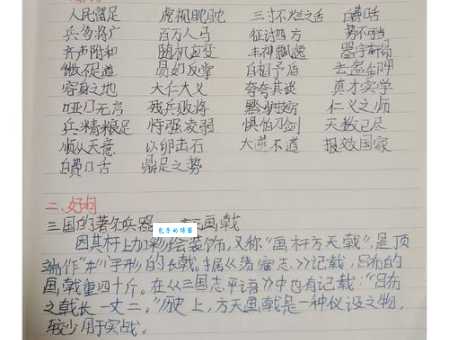 人民富足 虎视眈眈 三寸不烂之舌 白费口舌
兵多将广 百万人马 征讨四方 势不可当
齐声附和 随机应变 丰神飘逸
微不足道 易如反掌 自刎乌
容身之地 大仁大义 夸夸其谈 真才实学
哑口无言 残兵败将 黔驴技穷 仁义之师
兵精粮足 恃强凌弱 惧怕刀剑 天数已尽
顺从天意 以卵击石 大逆不道 报效国家
白费口舌 鼎足之势
二、好词
三国的著名兵器 画戟
因其杆上加彩绘装饰,又称“画杆方天戟”,是顶
端作“井”字形的长戟。据《》记载,吕布的
画戟重四十斤。在《三国志平话》中也有记载:“吕布
之戟长一丈二。”历史上,方天画戟是一种仪设之物,
较少用于实战。